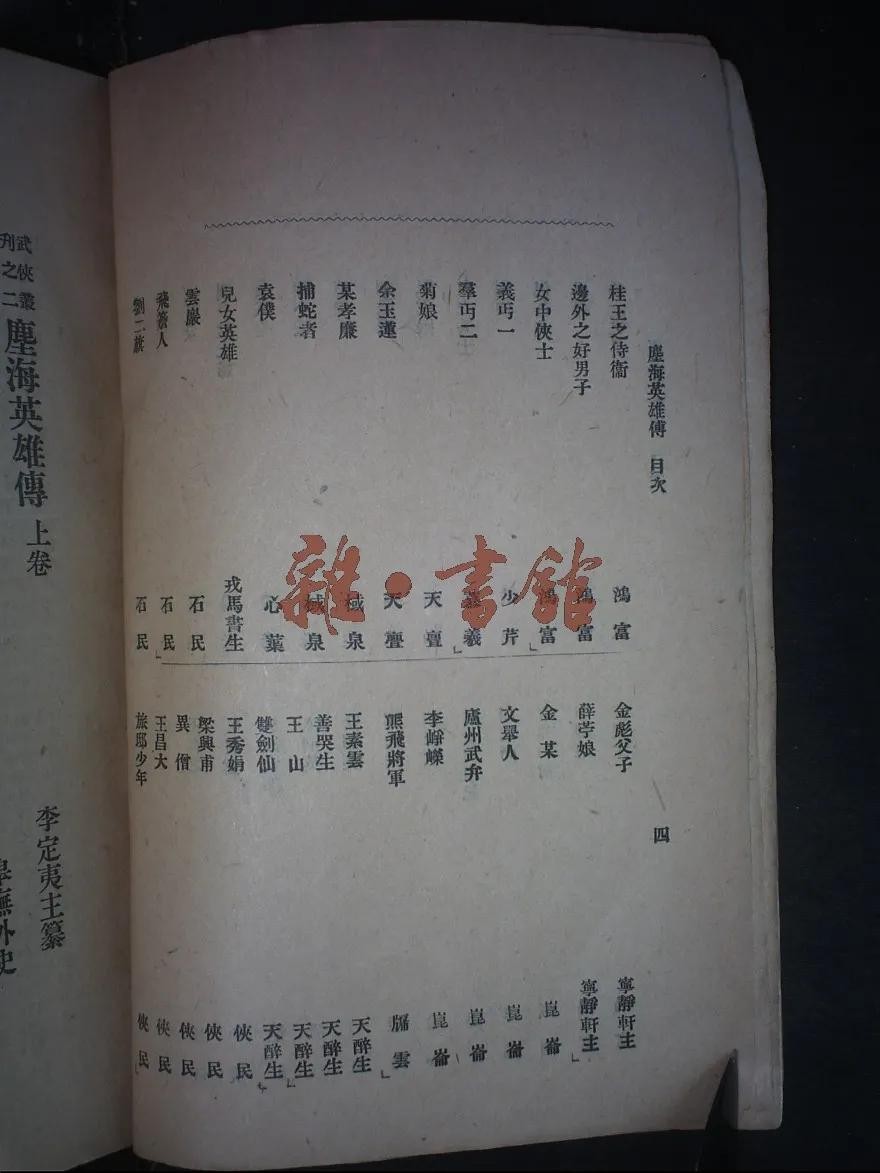 塵海英雄傳 目次 四
桂王之侍衞 鴻富
邊外之好男子 鴻富
女中俠士 鴻富
義丐一 少芹
羣丐二 義
菊娘 天亶
余玉蓮 天亶
某孝廉 棫泉
捕蛇者 棫泉
袁僕 心葉
兒女英雄 戎馬書生
雲巖 石民
飛簷人 石民
劉二旗 石民
金彪父子 寧靜軒主
薛苧娘 寧靜軒主
金某 崑崙
文舉人 崑崙
廬州武弁 崑崙
李崢嶸 崑崙
熊飛將軍 雲
王素雲 天醉生
善哭生 天醉生
王山 天醉生
雙劍仙 天醉生
王秀娟 俠民
梁興甫 俠民
異僧 俠民
王昌大 俠民
旅邸少年 俠民
雜·書館
武俠叢
刊之二
塵海英雄傳 上卷
李定夷主纂
廡外史